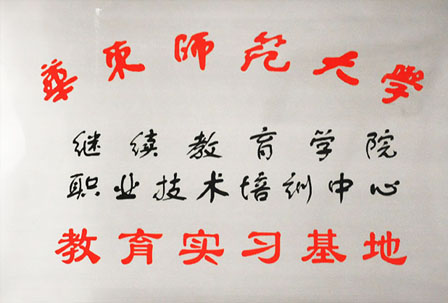 華東师范大学
继续教育学院
职业技术培训中心
教育实习基地